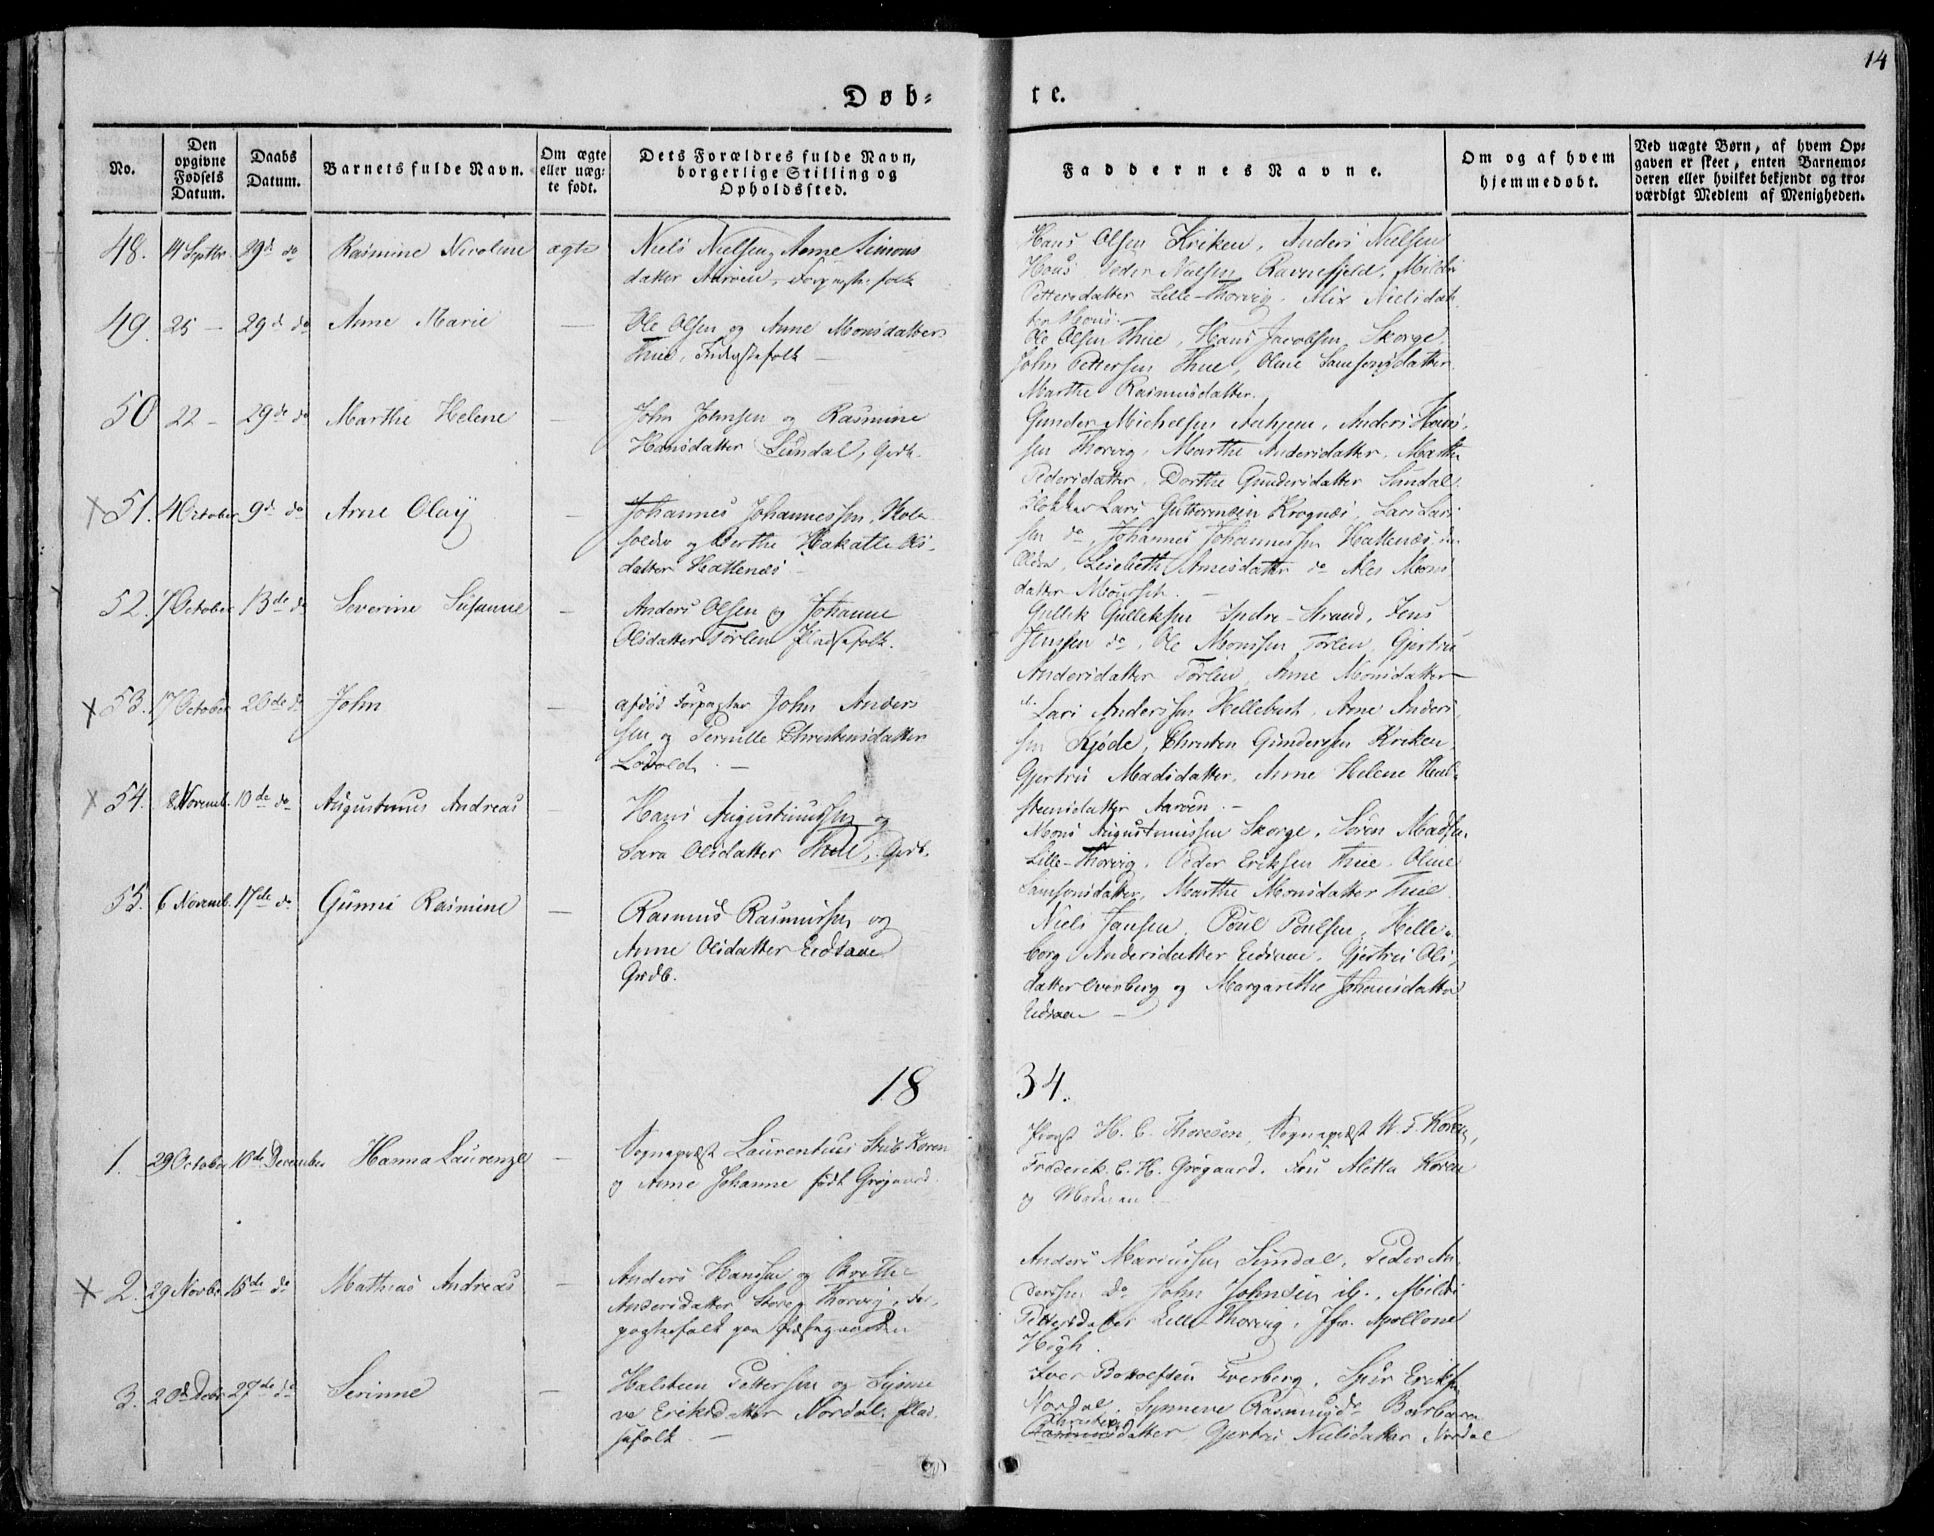 14
Døb-te.
No.
Den opgivne Fødsels Datum.
Daabs Datum.
Barnets fulde Navn.
Om ægte eller uægte født.
Dets Forældres fulde Navn, borgerlige Stilling og Opholdssted.
Faddernes Navne.
Om og af hvem hjemmedøbt.
Ved uægte Børn, af hvem Opgaven er skeet, enten Barnemoderen eller hvilket bekjendt og troværdigt Medlem af Menigheden.
48. 14 Septbr. 29de do Rasmine Nicoline ægte
Niels Nielsen, Anne Simons
datter Aarøen,
Hans Olsen Kriken, Anders Nielsen
Hous. Peder Nielsen Ravnefjeld, Mildri
Pettersdatter Lille-Thorvig, Nielsdat
ter Hous.
49. 25 – 29de do Anne Marie –
Ole Olsen og Anne Monsdatter
Thue, Inderstefolk –
Ole Olsen Thue, Hans Jacobsen Skorge,
John Pettersen Thue, Oline Samsonsdatter
Marthe Rasmusdatter.
50 22 – 29de do Marthe Helene –
John Jensen og Rasmine
Hansdatter Sundal, Grdb.
Gunder Michelsen, Anders Hans
sen Thorvig, Marthe Andersdatter, Marthe
Pedersdatter, Dorthe Gundersdatter Sundal.
X 51. 4 October 9de do Arne Olaÿ –
Johannes Johannessen, Skole
holder og Berthe Ols
datter Hattenæs –
Klokker Lars Guttormsen Krognæs, Lars Lars
sen do, Johannes Johannessen Hattenæs,
Lisebeth Arnesdatter do Mons
datter
52. 7 October 13de do Severine Susanne –
Anders Olsen og Johanne
Olsdatter Tørlen Pladsefolk.
Gullik Gulliksen Indre-Strand, Jens
Jensen do, Ole Monsen Tørlen, Gjertru
Andersdatter Tørlen, Anne Monsdatter –
X 53. 17 October 20de do John –
afdød Forpagter John Anders
sen og Pernille Christensdatter
Løvold. –
Lars Anderssen Hellebust, Arne Anders
sen Kjøde, Christen Gunderssen Kriken,
Gjertru Madsdatter, Anne Helene Hal-
steensdatter Aarøen. –
X 54. 8 Novemb. 10de do Augustinus Andreas –
Hans Augustinussen og
Sara Olsdatter Thue, Grdb.
Mons Augustinussen Skorge, Søren Madsen
Lille-Thorvig, Peder Eriksen Thue, Oline
Samsonsdatter, Marthe Monsdatter Thue.
55. 6 Novemb. 17de do Gunni Rasmine –
Rasmus Rasmussen og
Anne Olsdatter Eidsaae
Grdb.
Niels Jansen, Poul Poulsen, Helle-
borg Andersdatter Eidsaae, Gjertru Ols-
datter Overberg og Margarethe Johansdatter
Eidsaae –
18 34.
1. 29 October 10de December Hanna Laurenze –
Sognepræst Laurentius Stub Koren
og Anne Johanne født Grøgaard.
Provst H. C. Thoresen, Sognepræst W. F. Koren,
Frederik C. H. Grøgaard, Fru Aletta Koren
og Moderen –
X 2. 29 Novbr 15de do Mathias Andreas –
Anders Hanssen og Brithe
Andersdatter Store Thorvig, For-
pagtefolk paa Præstegaarden
Anders Mariussen Sundal, Peder An-
derssen do John Johnsen ib., Mildri
Pettersdatter Lille-Thorvig, Jfr. Apollone
Høgh.
3. 20de Decbr 27de do Serinne –
Halsteen Pettersen og Synne
ve Eriksdatter Nordal, plad
sefolk –
Iver Bottolfsen Everberg, Siver Eriksen
Nordal, Synneve Rasmusd. Barbara
Christens
Rasmusdatter, Gjertru Nielsdatter Nordal